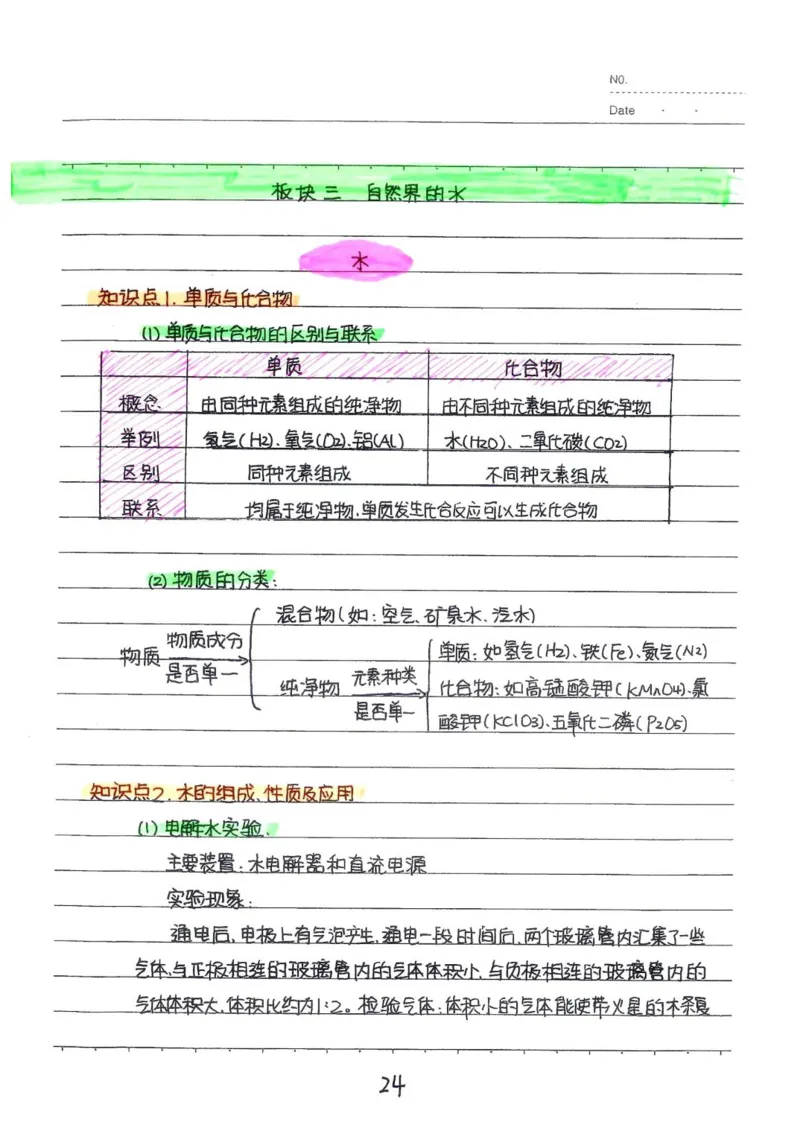 NO.
Date
板块三 自然界的水
水
知识点1. 单质与化合物
(1) 单质与化合物的区别与联系
单质 化合物
概念 由同种元素组成的纯净物 由不同种元素组成的纯净物
举例 氢气(H2)、氧气(O2)、铝(Al) 水(H2O)、二氧化碳(CO2)
区别 同种元素组成 不同种元素组成
联系 均属于纯净物,单质发生化合反应可以生成化合物
(2) 物质的分类:
混合物(如:空气、矿泉水、汽水)
物质 物质成分 是否单一
纯净物 元素种类 是否单一
单质:如氢气(H2)、铁(Fe)、氮气(N2)
化合物:如高锰酸钾(KMnO4)、氯
酸钾(KClO3)、五氧化二磷(P2O5)
知识点2. 水的组成、性质及应用
(1) 电解水实验.
主要装置:水电解器和直流电源
实验现象:
通电后,电极上有气泡产生,通电一段时间后,两个玻璃管内汇集了一些
气体,与正极相连的玻璃管内的气体体积小,与负极相连的玻璃管内的
气体体积大,体积比约为1:2。检验气体:体积小的气体能使带火星的木条复
24